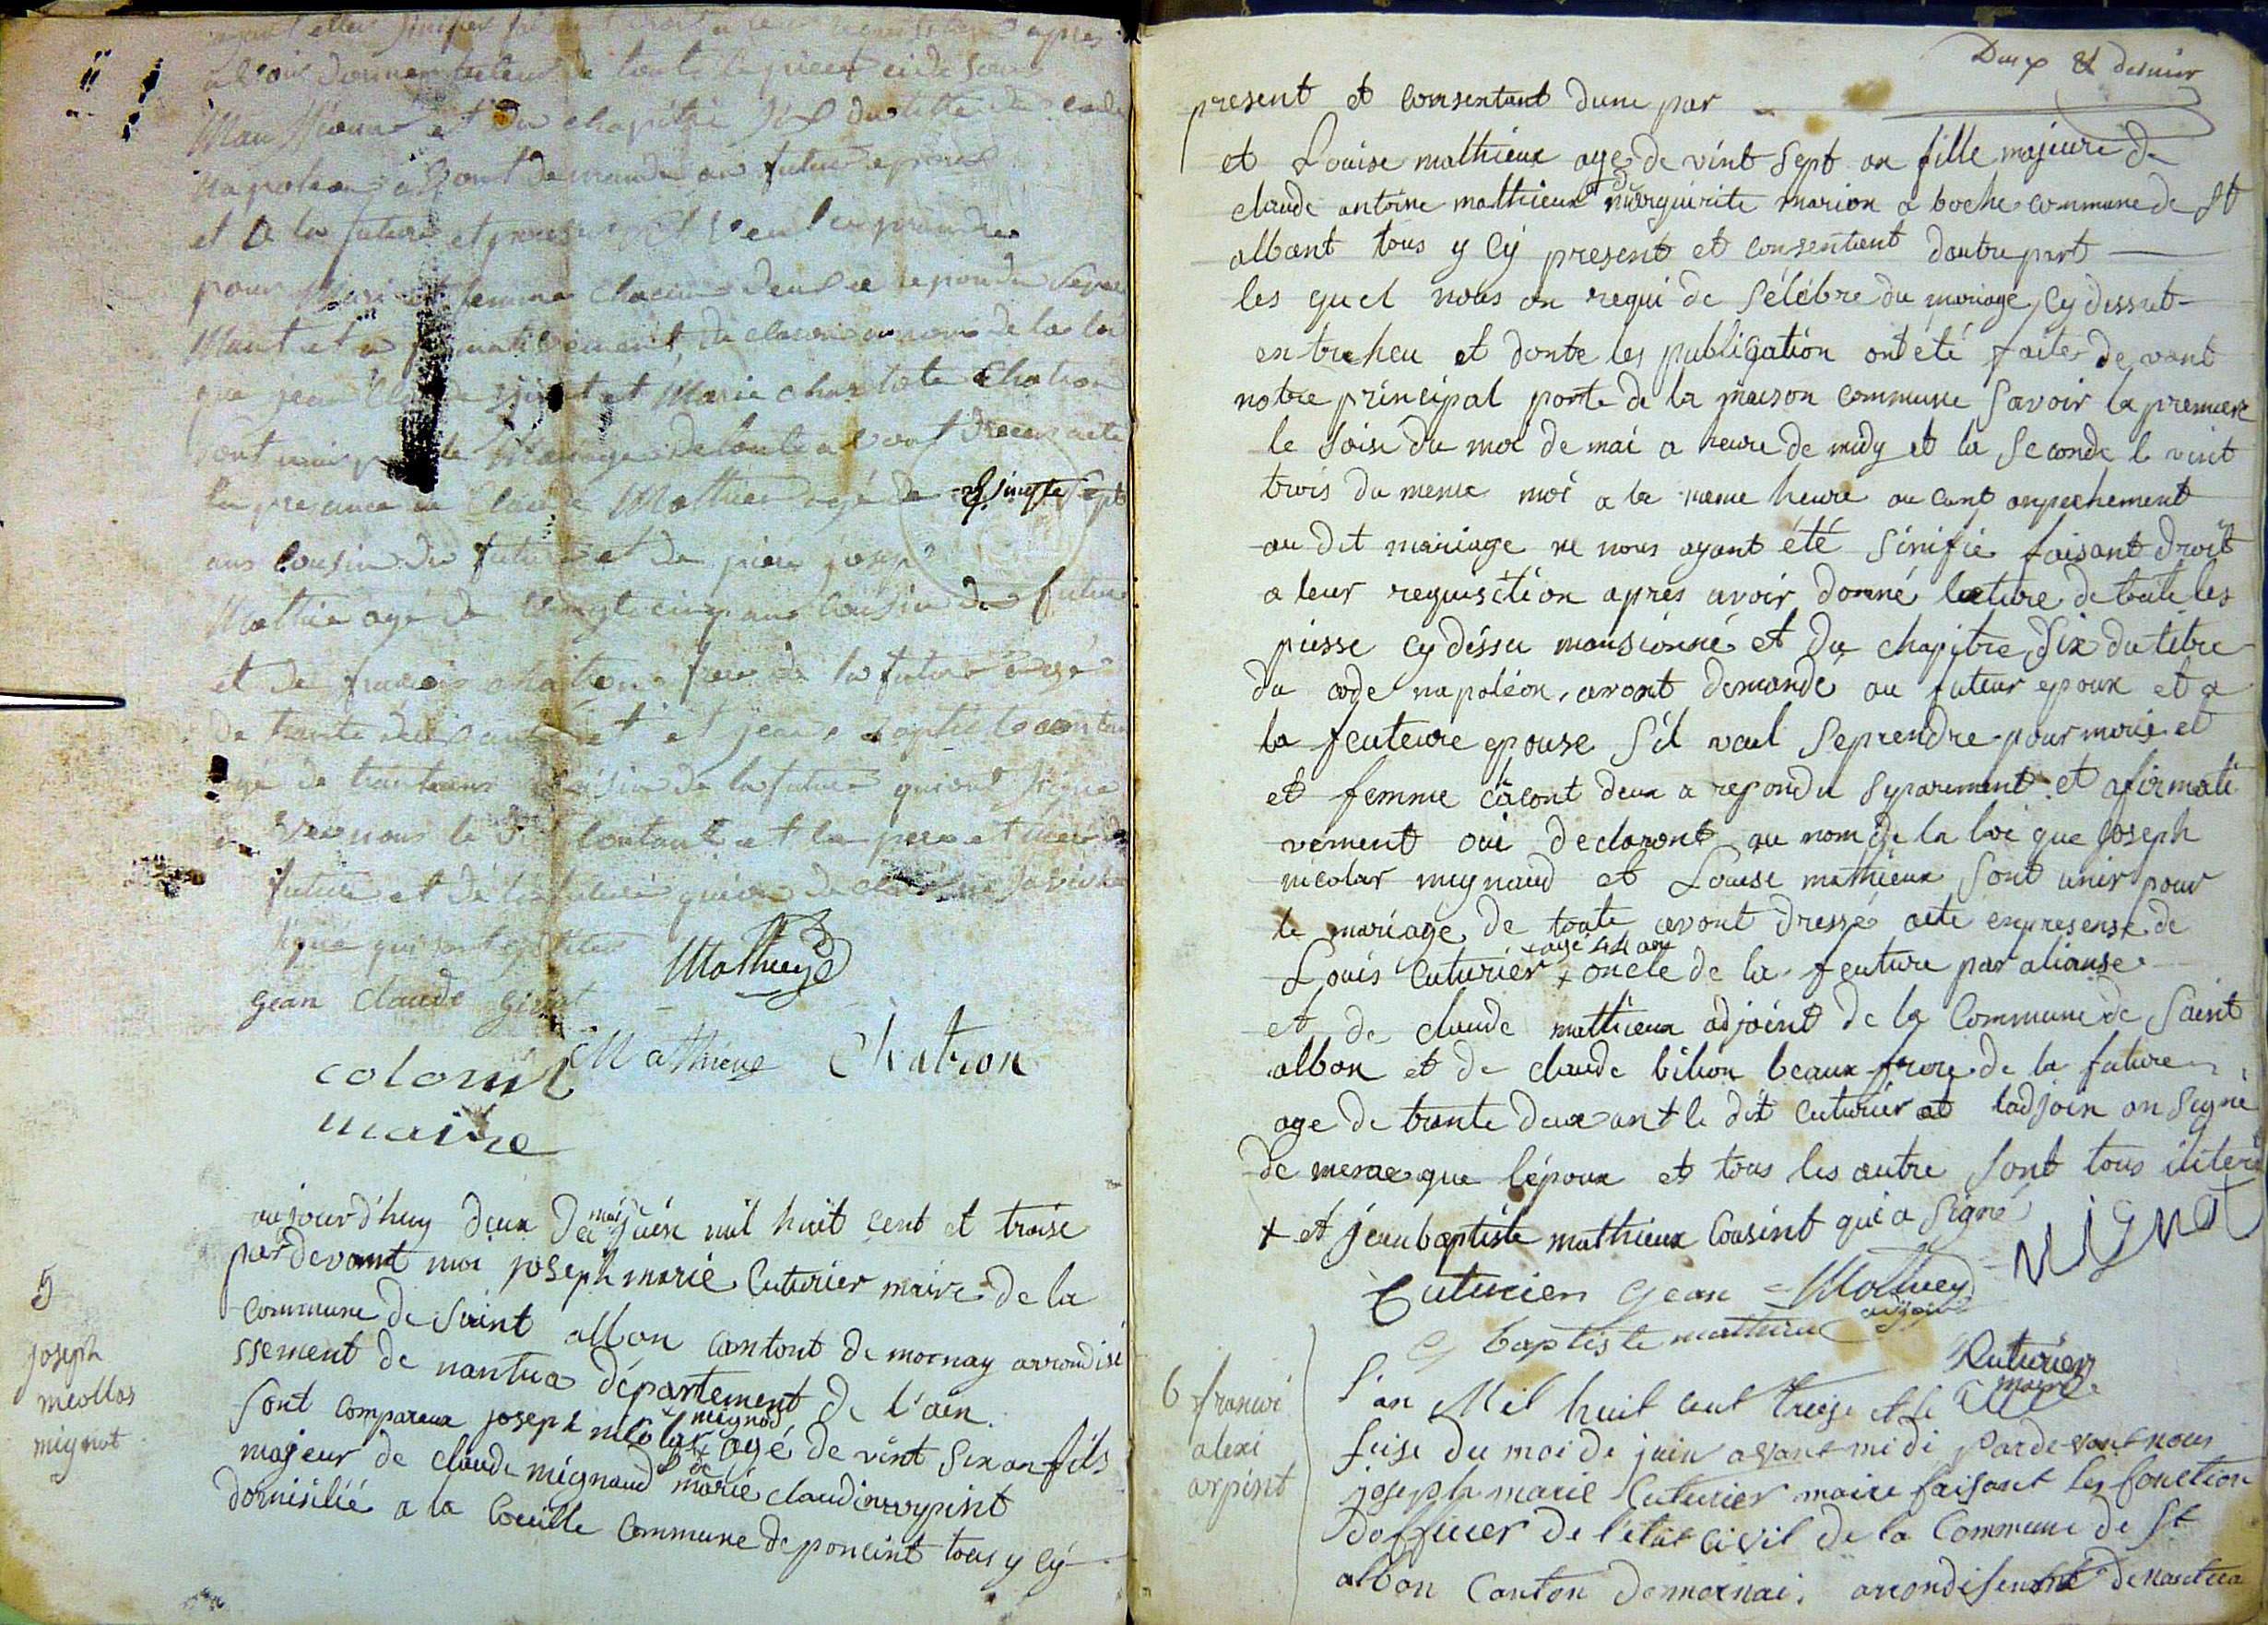 avoir donner lecture de toute le pieces ci de sus
et du chapitre six du titre du code
napoleon avont demandé au futur epoux
et a la future epouse
pour mari et femme chacun deux a repondu separe
mant et a firmativement, declarons au nom de la loi
que jean Claude et Marie charlote Chatron
sont unis par le Mariage de toute avont dressé acte
en presance de Claude Mathieu agé de vingte sept
ans cousin du futur et de piere joseph
Mathieu agé de vingt cinq ans cousin du futur
et de francois chatron frere de la future agé
de trante deux ans et et jean baptiste
agé de trante ans cousin de la future qui ont signé
avec nous le dit contant et la pere et mere du
future et de la future qui on declaré ne savoir
signe
gean claude
Mathieu
colomb Mathieu Chatron
maire
aujourd'huy deux de juin mil huit cent et traise
mai
par devant moi joseph marie Cuturier maire de la
commune de saint albon cantont de mornay arrondisé
ssement de nantua département de l'ain
sont compareux joseph nicolar agé de vint six an fils
mignod
majeur de claude mignaud et de marie claudine arpint
domisilié a la Coueille commune de poncint tous y cy
5
joseph
nicollas
mignot
Deux et dernier
present et consentant dune par
et Louise mathieux age de vint sept an fille majeure de
claude antoine mathieux et de marguirite marion a boche commune de St
albant tous y cy present et consentent dautre part
les quel nous on requi de sélébre du mariage cy dessut
entre heu et donte les publigation ont eté faites devant
notre principal porte de la maison commune savoir la premiere
le soise du moi de mai a heure de midy et la seconde le vint
trois du meme moi a la meme heure au cunt anpechement
au dit mariage ne nous ayant été sinifié faisant droit
a leur requisition apres avoir donné lecture de toute les
piesse cy déssu mansionné et du chapitre six du titre
du code napoléon, avont demande au futeur epoux et a
la feuteure epouse s'il voul se prendre pour marie et
et femme cacont deux a repondu séparement et afirmati
vement oui declaront au nom de la loi que joseph
nicolar mignaud et Louise mathieux sont unir pour
le mariage de toute avont dressé acte en presense de
Louis Cuturier + oncle de la feuture par alianse
agé 44 an
et de claude mathieux adjoint de la Commune de saint
albon et de claude bilion beaux frere de la future
age de trente deux an + le dit cuturier et ladjoin on signé
de meme que lépoux et tous les autre sont tous iliteré
+ et jean baptiste mathieux cousint qui a signé
Mignot
Cuturier gean Mathieu
baptiste mathieu adjoint
Cuturier
maire
6 francoi
alexi
arpint
L'an Mil huit cent treize et le
seise du moi de juin avant midi par devant nous
joseph marie Cuturier maire faisant les fonction
dofficier de l'état civil de la Commune de St
albon Canton de mornai, arrondisement de nantua